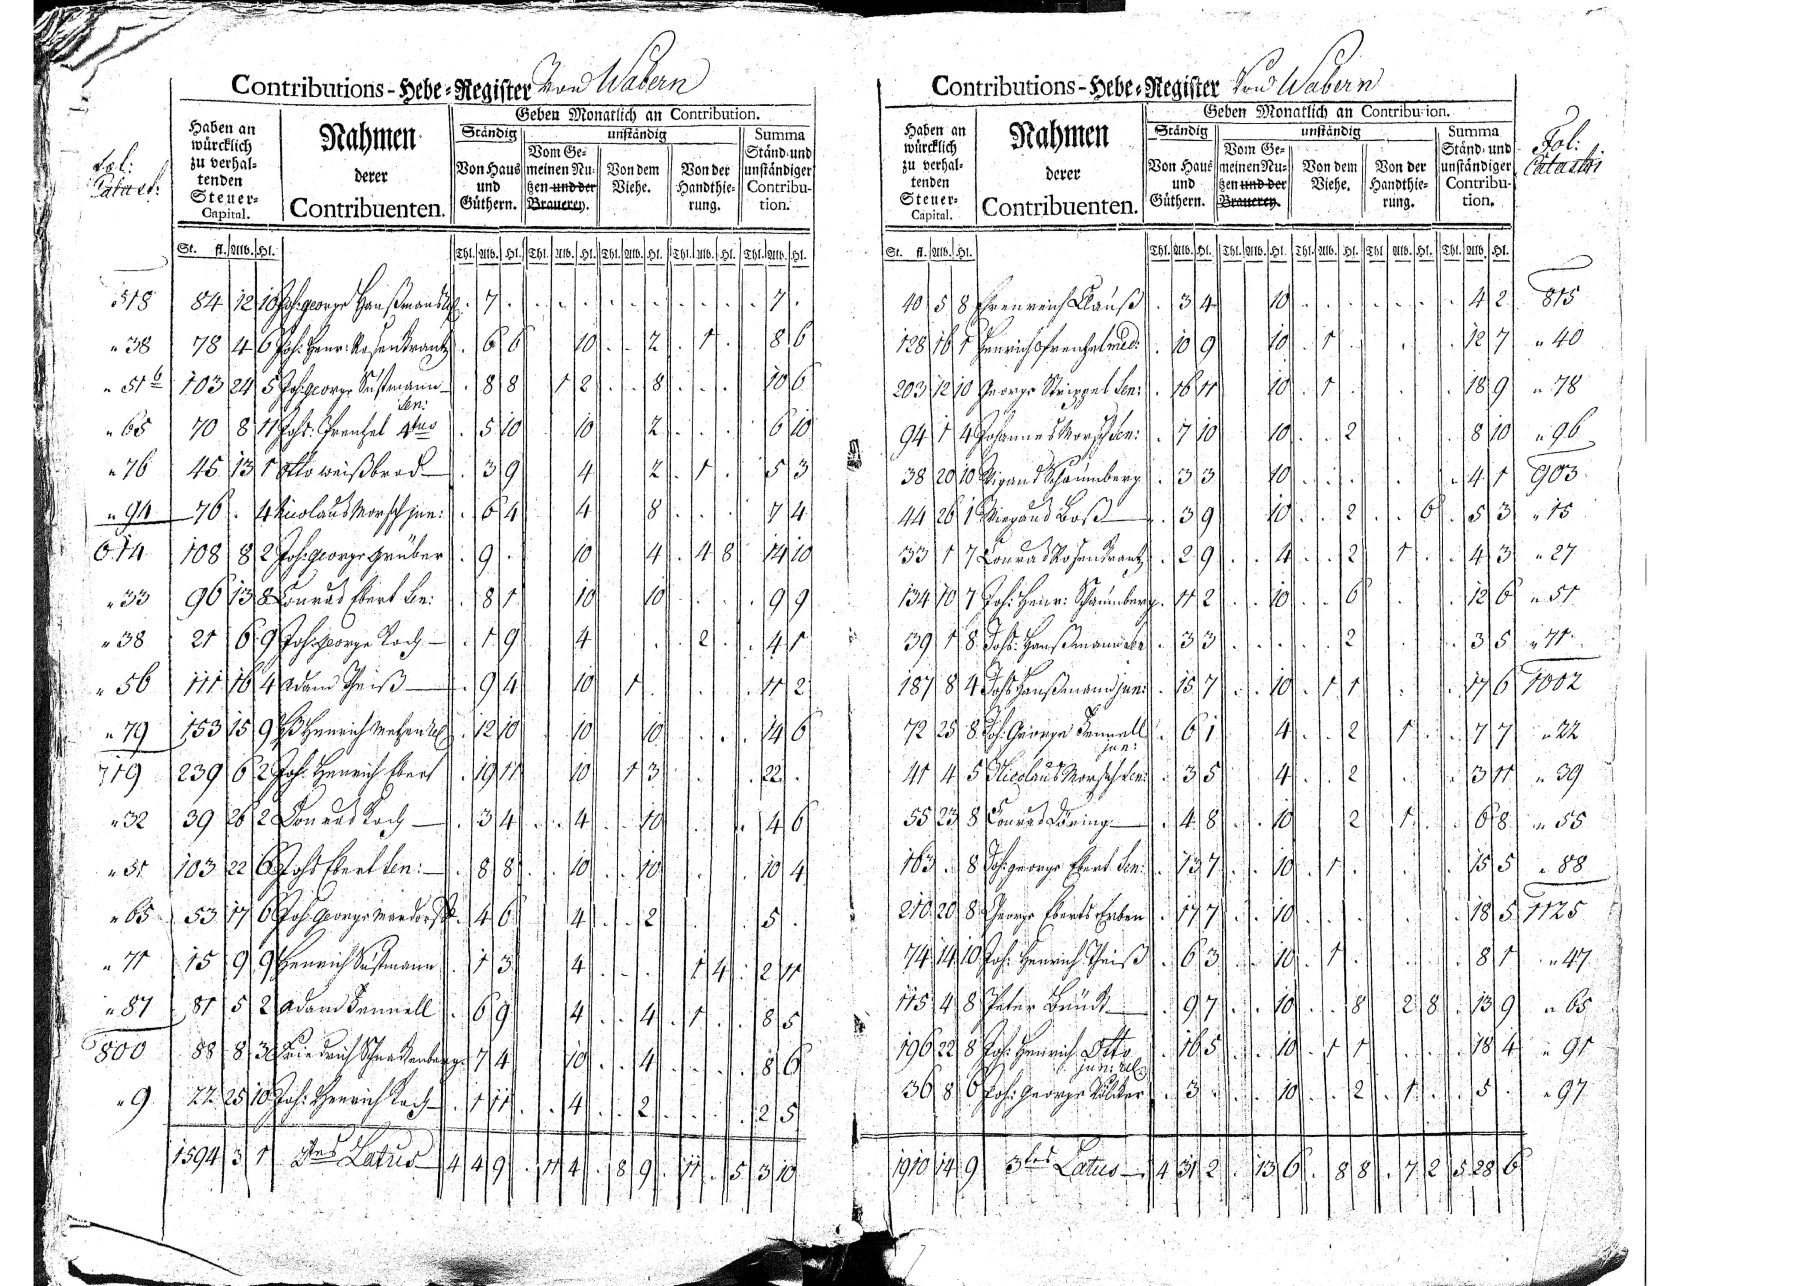 Contributions-Hebe-Register Von Wabern
Fol: Catast:
Haben an würcklich zu verhaltenden Steuer-Capital.
Nahmen derer Contribuenten.
Geben Monatlich an Contribution.
Ständig unständig
Von Haus und Güthern.
Vom Gemeinen Nutzen und der Brauerey.
Von dem Viehe.
Von der Handthierung.
Summa Ständ. und unständiger Contribution.
St. fl. Alb. Hl. Thl. Alb. Hl. Thl. Alb. Hl. Thl. Alb. Hl. Thl. Alb. Hl. Thl. Alb. Hl.
518 84 12 10 Joh: George Hanßmans . 7 . . . . . . . . . . . 7 .
" 38 78 4 6 Joh: Henr: Rosenkrantz . 6 6 10 . . 2 . 1 . 8 6
" 51 b 103 24 5 Joh: George Sustmann Sen: . 8 8 1 2 . . 8 . . . 10 6
" 65 70 8 11 Johs: Frentzel 4tus . 5 10 10 2 6 10
" 76 45 13 1 Otto Weißbrod . 3 9 4 2 . 1 . . 5 3
" 94 76 . 4 Nicolaus Morsch jun: . 6 4 4 8 . . . 7 4
614 108 8 2 Joh: George Grüber . 9 . 10 4 . 4 8 14 10
" 33 96 13 8 Conrad Ebert Se: . 8 1 10 10 9 9
" 38 21 6 9 Joh: George Koch . 1 9 4 . 2 . . 4 1
" 56 111 16 4 Adam Theiß . 9 4 10 1 . . 11 2
" 79 153 15 9 Henrich Metzen . 12 10 10 10 . . . 14 6
719 239 6 2 Joh: Henrich Ebert . 19 11 10 1 3 22 .
" 32 39 26 2 Conrad Koch . 3 4 . . 4 . . 10 . 4 6
" 51 103 22 6 Johs Ebert Sen: . 8 8 . . 10 . . 10 10 4
" 65 53 17 6 Joh: George . 4 6 4 . . 2 5 .
" 71 15 9 9 Henrich Sustmann . 1 3 4 . . . 1 4 . 2 11
" 87 81 5 2 Adam Fennell . 6 9 4 . . 4 . 1 . . 8 5
800 88 8 3 Friedrich Schnackenberg . 7 4 10 . . 4 8 6
" 9 22 25 10 Joh: Henrich Koch . 1 11 . . 4 . . 2 . 2 5
1594 3 1 2tes Latus 4 4 9 . 11 4 . 8 9 . 11 . 5 3 10
Contributions-Hebe-Register Von Wabern
Haben an würcklich zu verhaltenden Steuer-Capital.
Nahmen derer Contribuenten.
Geben Monatlich an Contribution.
Ständig unständig
Von Haus und Güthern.
Vom Gemeinen Nutzen und der Brauerey.
Von dem Viehe.
Von der Handthierung.
Summa Ständ. und unständiger Contribution.
Fol: Catastri
St. fl. Alb. Hl. Thl. Alb. Hl. Thl. Alb. Hl. Thl. Alb. Hl. Thl. Alb. Hl. Thl. Alb. Hl.
40 5 8 Ehrenreich Clauß . 3 4 10 . . . . . . . 4 2 815
128 16 1 Henrich Frentzel med: . 10 9 10 . 1 . 12 7 " 40
203 12 10 George Strippel Sen: . 16 11 10 . 1 . 18 9 " 78
94 1 4 Johannes Morsch Sen: . 7 10 10 . . 2 8 10 " 96
38 20 10 Wigand Schaumberg . 3 3 10 . . . 4 1 903
44 26 1 Wiegand Boß . 3 9 10 . . 2 . . 6 . 5 3 " 15
33 1 7 Conrad Rosenkrantz . 2 9 . . 4 . . 2 1 . . 4 3 " 27
134 10 7 Joh: Henr: Schaumberg . 11 2 . . 10 . . 6 . 12 6 " 51
39 1 8 Johs: Hanßmann . 3 3 . . . . 2 . 3 5 " 71
187 8 4 Johs Hanßmann jun: . 15 7 . . 10 . 1 1 . 17 6 1002
72 25 8 Joh: George Fennell jun: . 6 1 4 . . 2 1 . . 7 7 " 22
41 4 5 Nicolaus Morsch Sen: . 3 5 4 . . 2 . 3 11 " 39
55 23 8 Conrad Döring . 4 8 . . 10 2 1 . . 6 8 " 55
163 . 8 Joh: George Ebert Sen: . 13 7 . . 10 . 1 . 15 5 " 88
210 20 8 George Eberts Erben . 17 7 . . 10 . . . 18 5 1125
74 14 10 Joh: Henrich Theiß . 6 3 . . 10 . 1 . 8 1 " 47
115 4 8 Peter . 9 7 . . 10 . . 8 2 8 . 13 9 " 65
196 22 8 Joh: Henrich Otto jun: . 16 5 . . 10 . 1 1 . 18 4 " 91
36 8 6 Joh: George Völcker . 3 . . . 10 . . 2 . 1 . . 5 . " 97
1910 14 9 3tes Latus 4 31 2 . 13 6 . 8 8 . 7 2 5 28 6